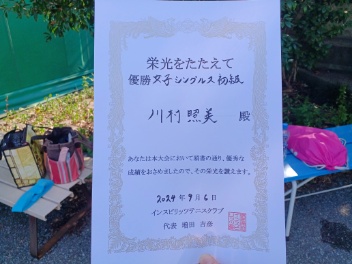 栄光をたたえて
優勝 女子シングルス 初級
川村 照美 殿
あなたは本大会において頭書の通り、優秀な
成績をおさめましたので、その栄光を讃えます。
2024年9月6日
インスピリッツテニスクラブ
代表